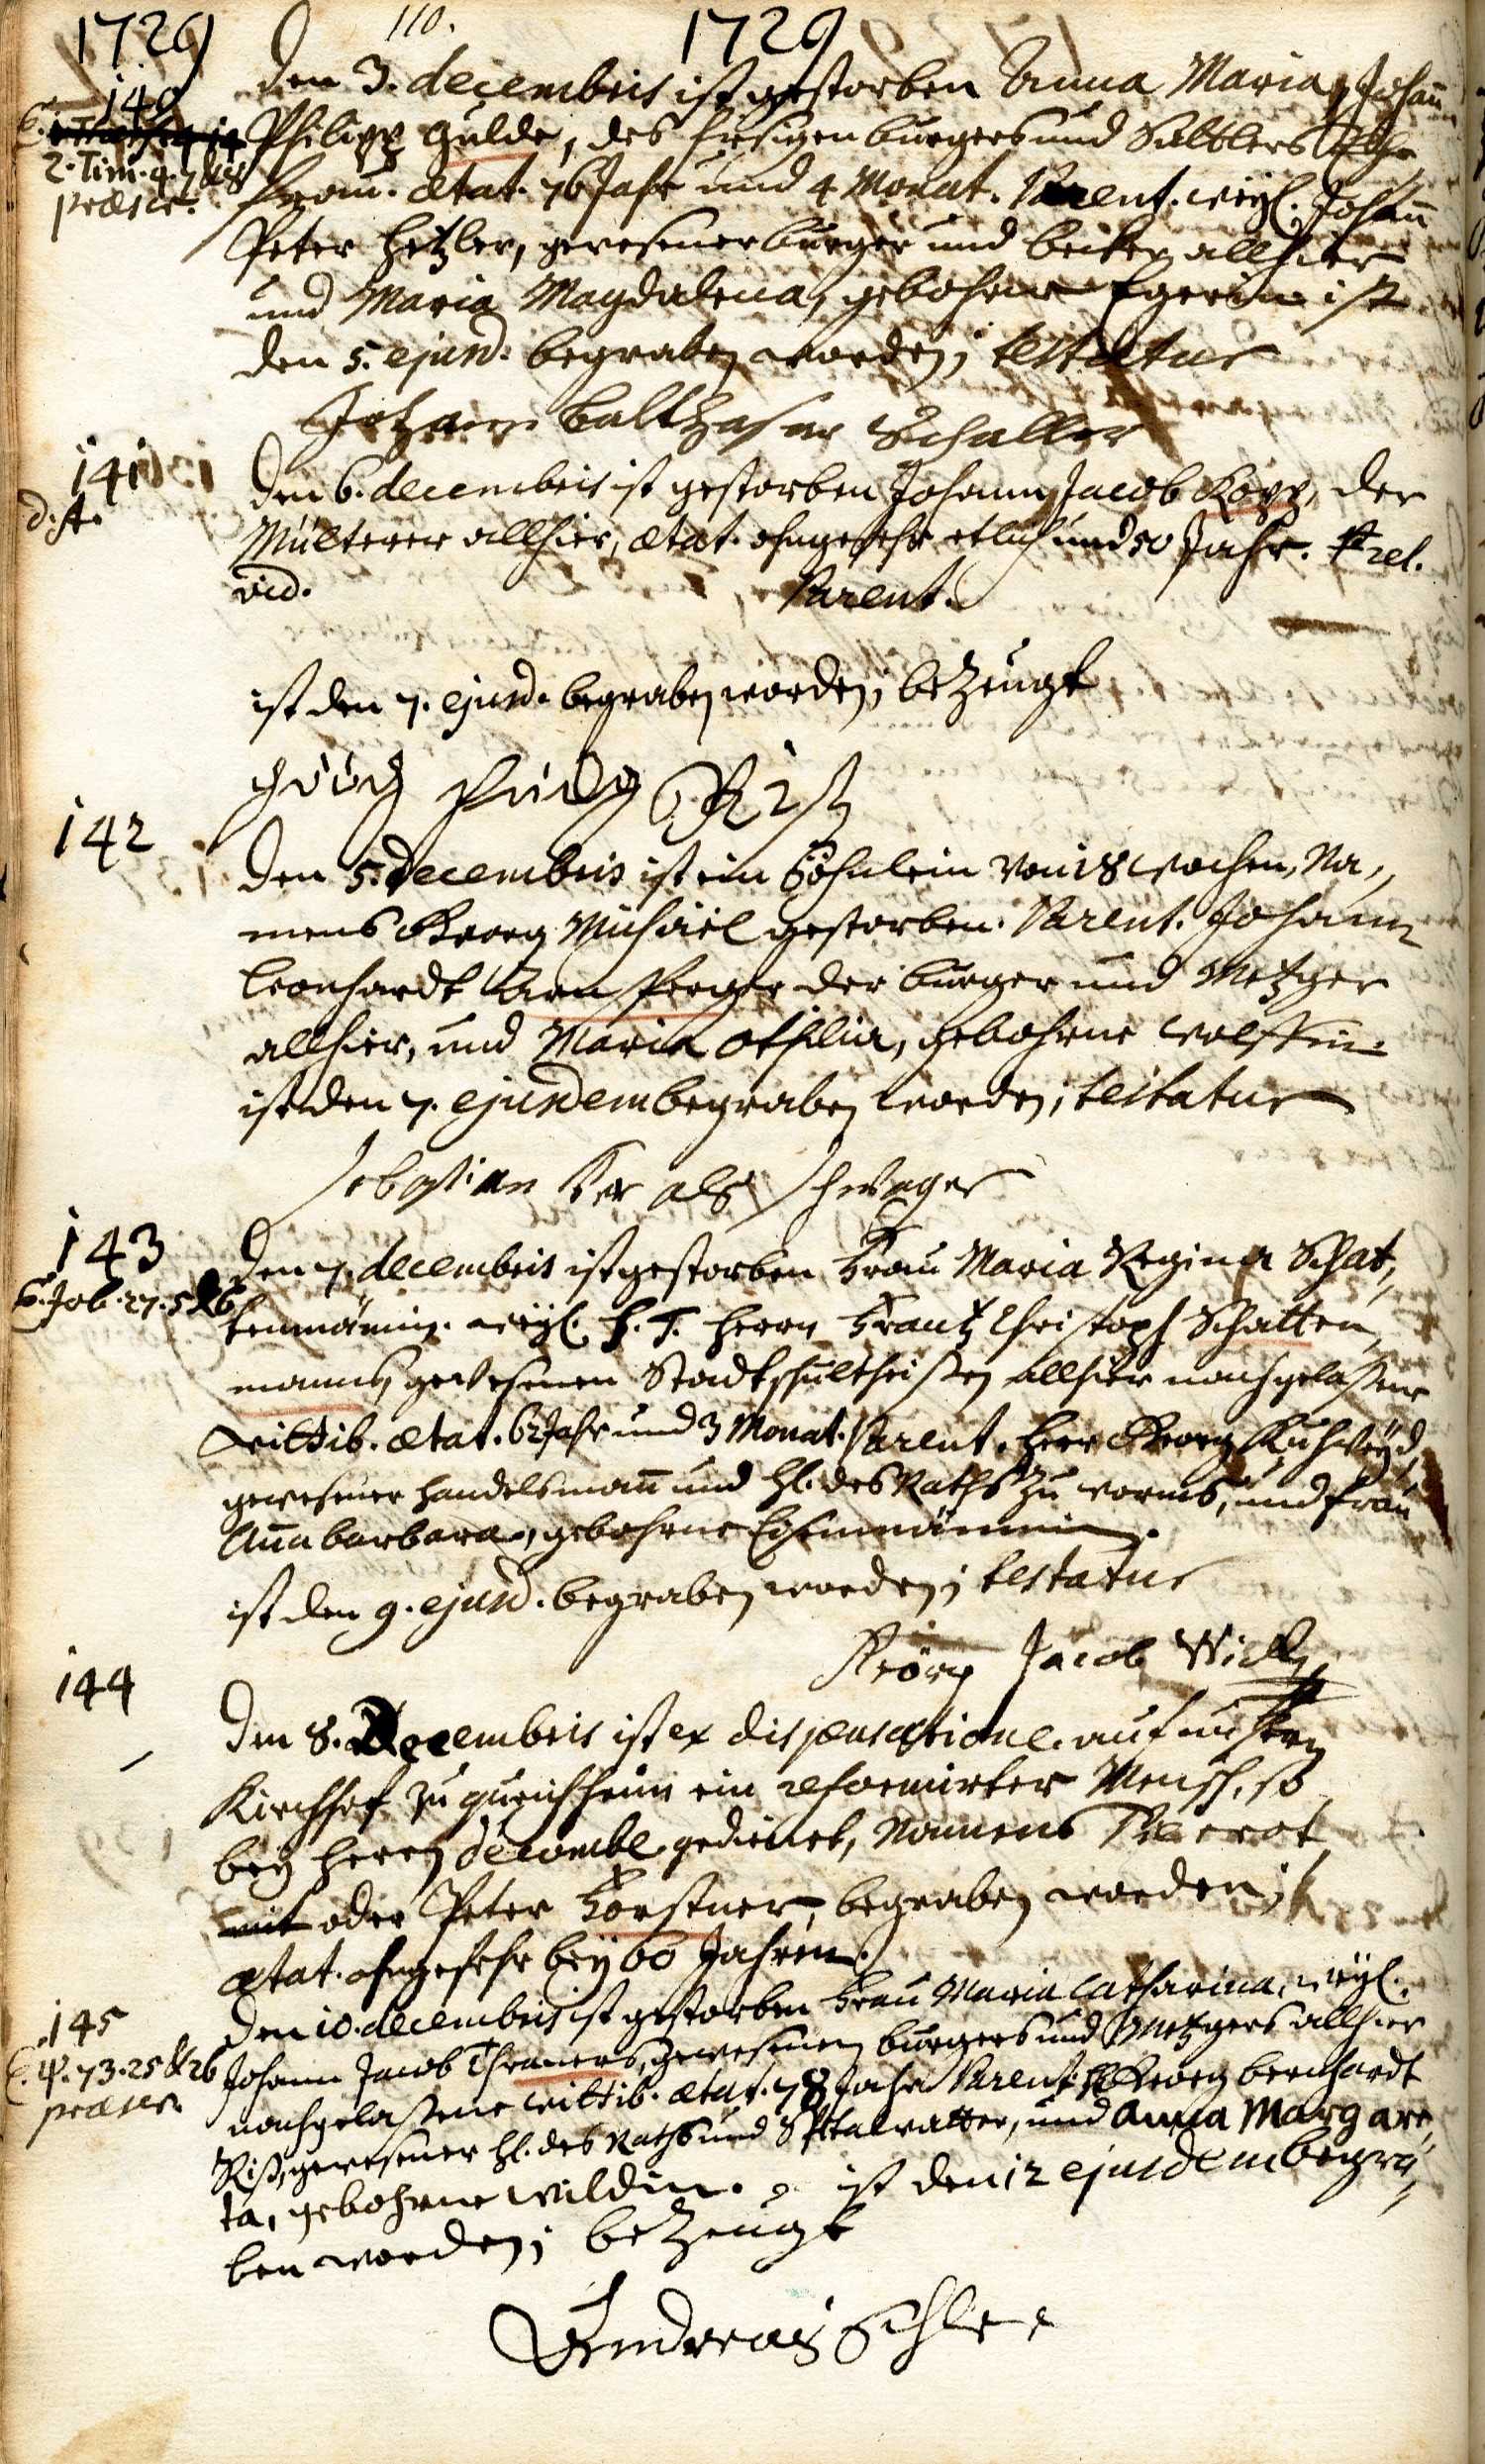 1729 110. 1729
140
2. Tim. 4. 7 & 8
præser.
den 3. decembris ist gestorben Anna Maria, Johañ
Philipp Gulde, des hiesigen burgers und Sattlers Ehe
frau. ætat. 76 Jahr und 4 Monat. Parent. weyl. Johañ
Peter Hetzler, gewesener burger und becker allhier
und Maria Magdalena, gebohrne Egerin ist
den 5. ejusd. begraben worden; testatur
Johann Balthasar Schaller
141
dist.
den 6. decembris ist gestorben Johann Jacob Kopp, der
Mülterer allhier, ætat. ohngefehr etlich und 50 Jahr. rel.
vid. Parent.
ist den 7. ejusd. begraben worden; bezeugt
142
den 5. Decembris ist ein Söhnlein von 18 wochen, Na„
mens Georg Michäel gestorben. Parent. Johann
Leonhardt der burger und Metzger
allhier, und Maria Othilia, gebohrne Wolffin
ist den 7. ejusdem begraben worden; testatur
Sebastian als Schwager
143
C. Job. 27. 5 & 6
den 7. decembris ist gestorben Frau Maria Regina Schat„
tenmännin. weyl. H. T. Herrn Frantz Christoph Schatten
manns, gewesenen Stadtschultheisen allhier nachgelaßene
wittib. ætat. 62 Jahr und 3 Monat. Parent. Herr Georg
gewesener handelsmañ und Gl. des Raths zu worms, und Frau
Aña barbara, gebohrne Eisenmännin.
ist den 9. ejusd. begraben worden; testatur
Georg Jacob
144
den 8. Decembris ist ex dispensatione auf
Kirchhof zu queichheim ein reformirter Mensch, so
bey Herrn Decombe gedienet, Namens Pierrot
mit oder Peter Forstner, begraben worden;
ætat. ohngefehr bey 60 Jahren.
145
C. Ψ. 73. 25 & 26
præser.
den 10. decembris ist gestorben Frau Maria Catharina, weyl.
Johann Jacob Thraners, gewesenen burgers und Metzgers allhier
nachgelaßene wittib. ætat. 78 Jahr Parent. H. Georg bernhardt
Riß, gewesener Gl. des Raths und Spitalvatter, und Anna Margare„
ta, gebohrne Wildin. ist den 12 ejusdem begra„
ben worden; bezeugt
Andreas Schlee